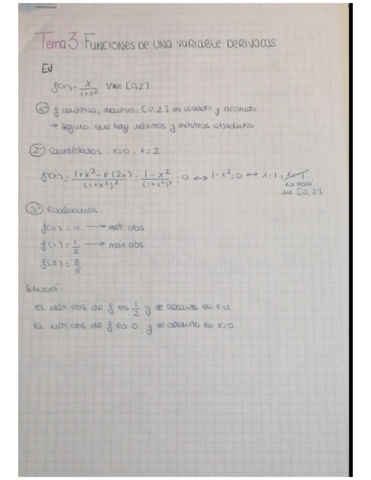 Tema 3: FUNCIONES DE UNA VARIABLE. DERIVADAS
EJ
f(x) = x/(1+x²) x∈ [0,2]
1º f continua, [0,2] es cerrado y acotado
→ Seguro que hay máximos y mínimos absolutos
2º Candidatos: x=0, x=2
f'(x) = (1+x²-x(2x))/(1+x²)² = (1-x²)/(1+x²)² = 0 ↔ 1-x²=0 ↔ x=1,
no está
en [0,2]
3º Evaluamos
f(0) = 0 → mín abs
f(1) = 1/2 → máx abs
f(2) = 2/5
El máx abs de f es 1/2 y se alcanza en x=1
El mín abs de f es 0 y se alcanza en x=0